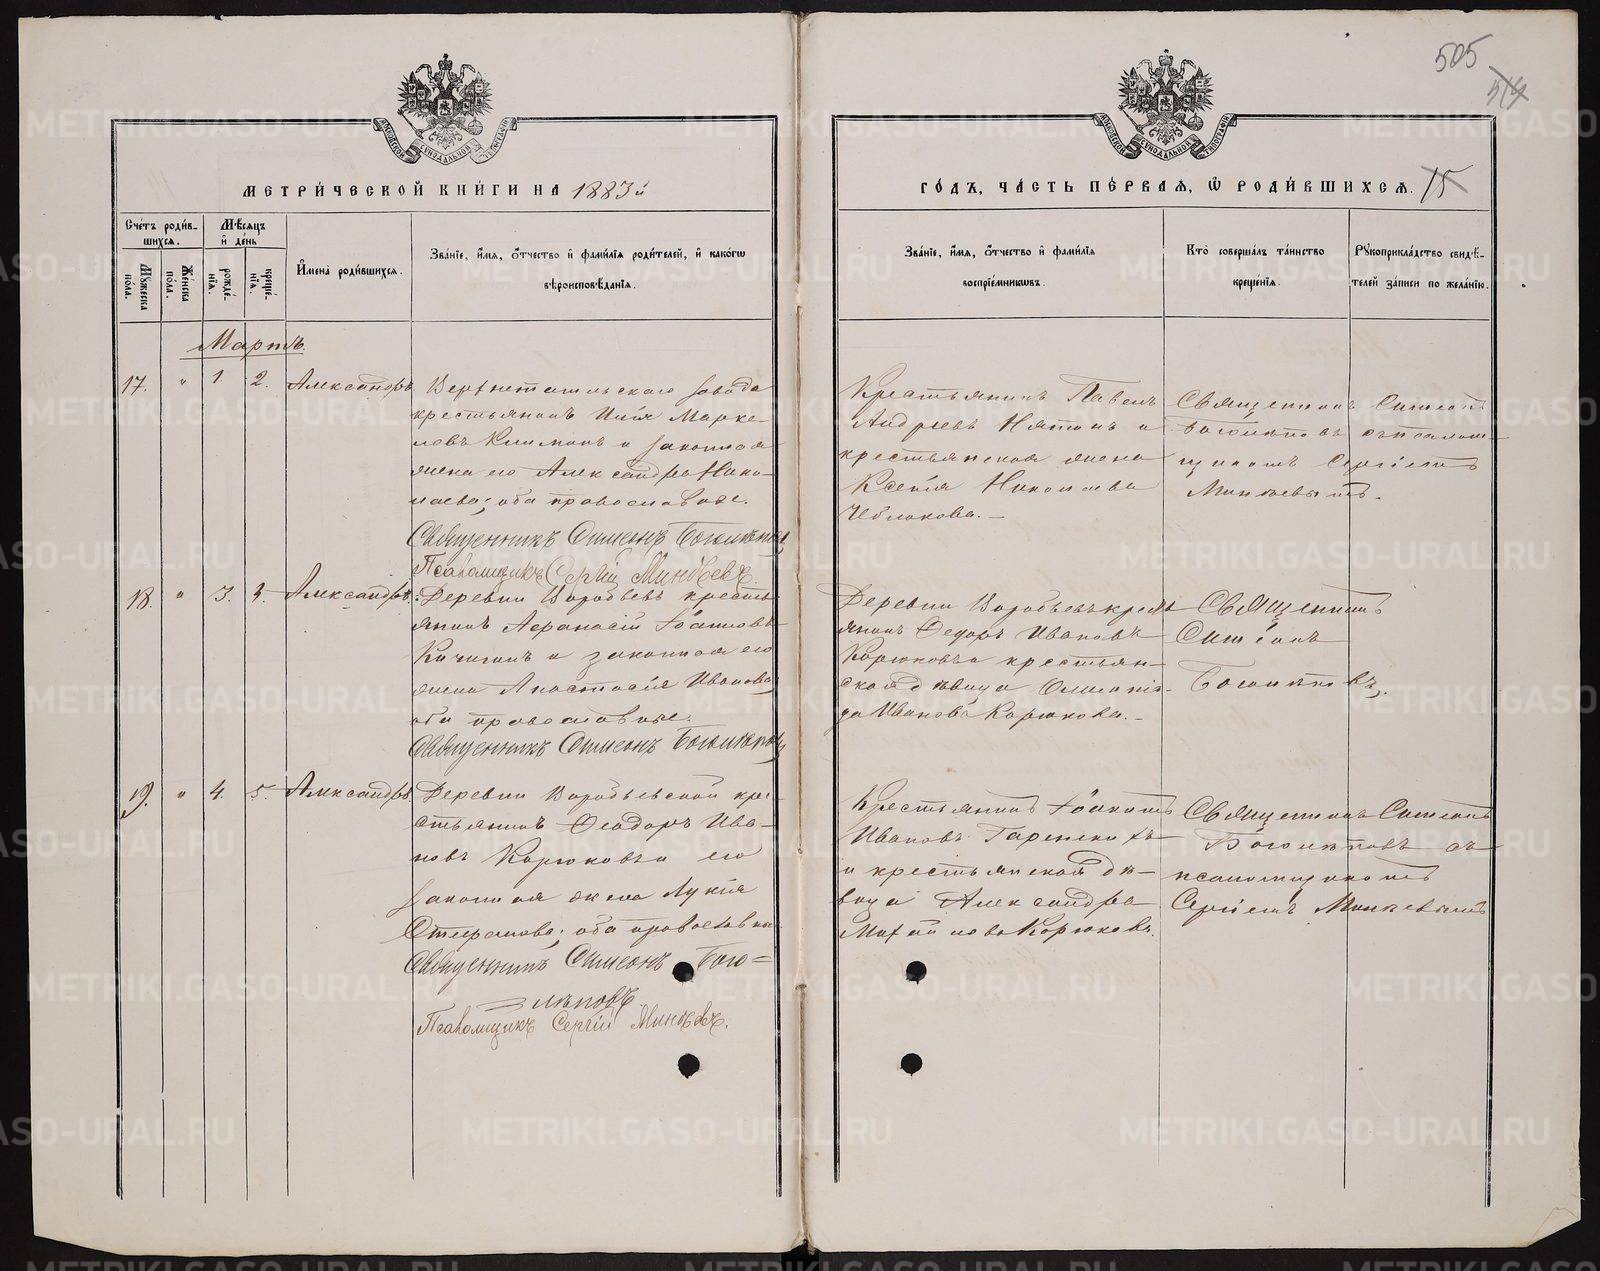 505
514
МЕТРИ́ЧЕСКОЙ КНИ́ГИ НА 1883й
ГО́ДЪ, ЧА́СТЬ ПЕ́РВАЯ, Ѡ РОДИ́ВШИХСЯ. 15
Сче́тъ роди́в-
шихся.
Мѣ́сяцъ
и де́нь
Му́жеска
по́ла.
Же́нска
по́ла.
рожде́-
нія.
креще́-
нія.
И́мена роди́вшихся.
Зва́ніе, и́мя, о́тчество и фами́лія роди́телей, и како́гѡ
вѣроисповѣ́данія.
Зва́ніе, и́мя, о́тчество и фами́лія
воспріе́мниковъ.
Кто̀ соверша́лъ та́инство
креще́нія.
Рꙋкоприкла́дство свидѣ́-
телей за́писи по жела́нію.
Мартъ
17. " 1. 2. Александръ
завода
крестьянинъ Илія Марке-
ловъ и законная
жена его Александра Нико-
лаева; оба православные.
Священникъ Симеонъ Боголѣповъ
Псаломщикъ Сергій Минѣевъ.
Крестьянинъ Павелъ
Андреевъ и
крестьянская жена
Ксенія Николаева
Священникъ Симеонъ
Боголѣповъ съ псалом-
щикомъ Сергіемъ
18. " 3. Александръ.
Деревни Воробьевъ кресть-
янинъ Афанасій
Кичигинъ и законная его
жена Анастасія Иванова,
оба православные.
Священникъ Симеонъ Боголѣповъ
Деревни Воробьевъ кресть-
янинъ Федоръ Ивановъ
Корюковъ и крестьян-
ская дѣвица Олимпіа-
да Иванова Корюкова.
Священникъ
Симеонъ
Боголѣповъ.
19. " 4. 5. Александръ
Деревни Воробьевской кре-
стьянинъ Феодоръ Ива-
новъ Корюковъ и его
законная жена Лукія
Стефанова; оба православные
Священникъ Симеонъ Бого-
лѣповъ
Псаломщикъ Сергій Минѣевъ.
Крестьянинъ Іоакимъ
Ивановъ
и крестьянская дѣ-
вица Александра
Корюкова.
Священникъ Симеонъ
Боголѣповъ съ
псаломщикомъ
Сергіемъ
METRIKI.GASO-URAL.RU